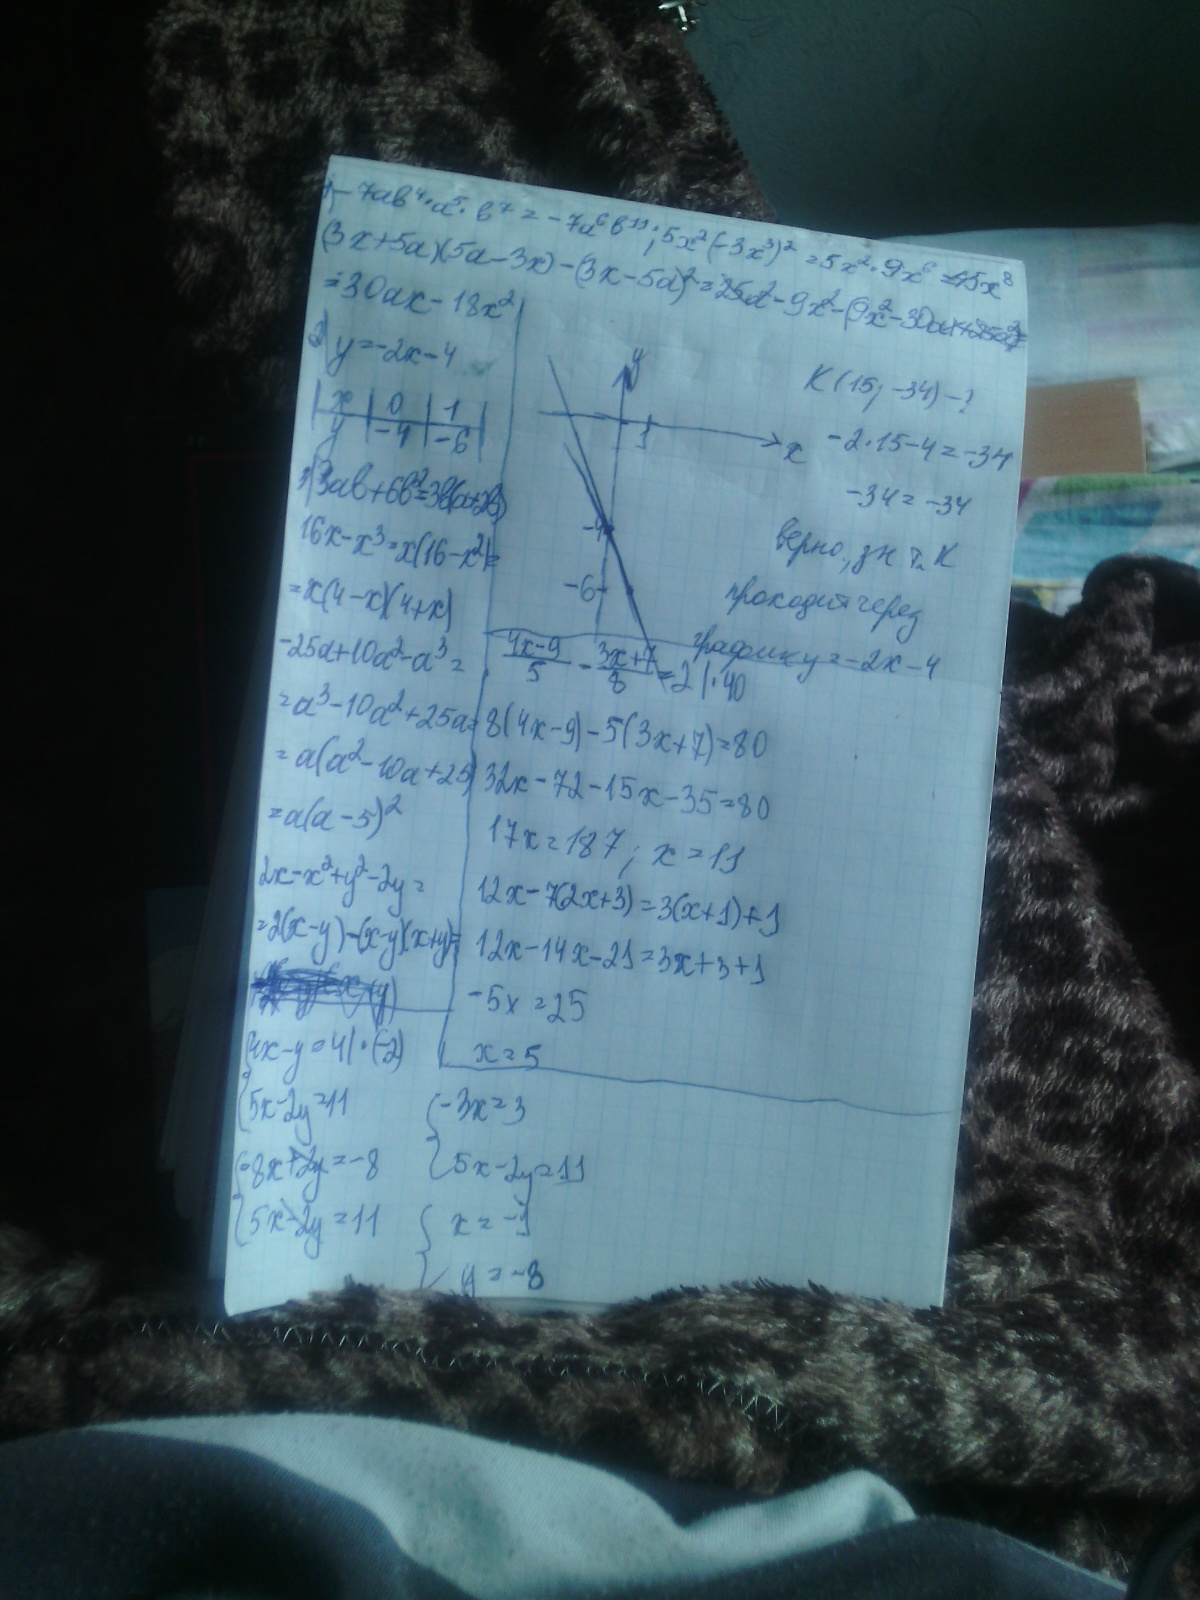 1) -7ab⁴·a⁵·b⁷ = -7a⁶b¹¹; 5x²(-3x³)² = 5x²·9x⁶ = 45x⁸
(3x+5a)(5a-3x)-(3x-5a)² = 25a²-9x²-(9x²-30ax+25a²)=
=30ax-18x²
2) y=-2x-4
x | 0 | 1
y | -4 | -6
y
x
1
-4
-6
K(15; -34)-?
-2·15-4=-34
-34=-34
верно, зн т. K
проходит через
график y=-2x-4
3) 3ab+6b²=3b(a+2b)
16x-x³=x(16-x²)=
=x(4-x)(4+x)
-25a+10a²-a³=
=a³-10a²+25a=
=a(a²-10a+25)
=a(a-5)²
2x-x²+y²-2y=
=2(x-y)-(x-y)(x+y)=
(4x-9)/5 - (3x+7)/8 = 2 |·40
8(4x-9)-5(3x+7)=80
32x-72-15x-35=80
17x=187; x=11
12x-7(2x+3)=3(x+1)+1
12x-14x-21=3x+3+1
-5x=25
x=5
{4x-y=4|·(-2)
{5x-2y=11
{-8x+2y=-8
{5x-2y=11
{-3x=3
{5x-2y=11
{x=-1
{y=-8